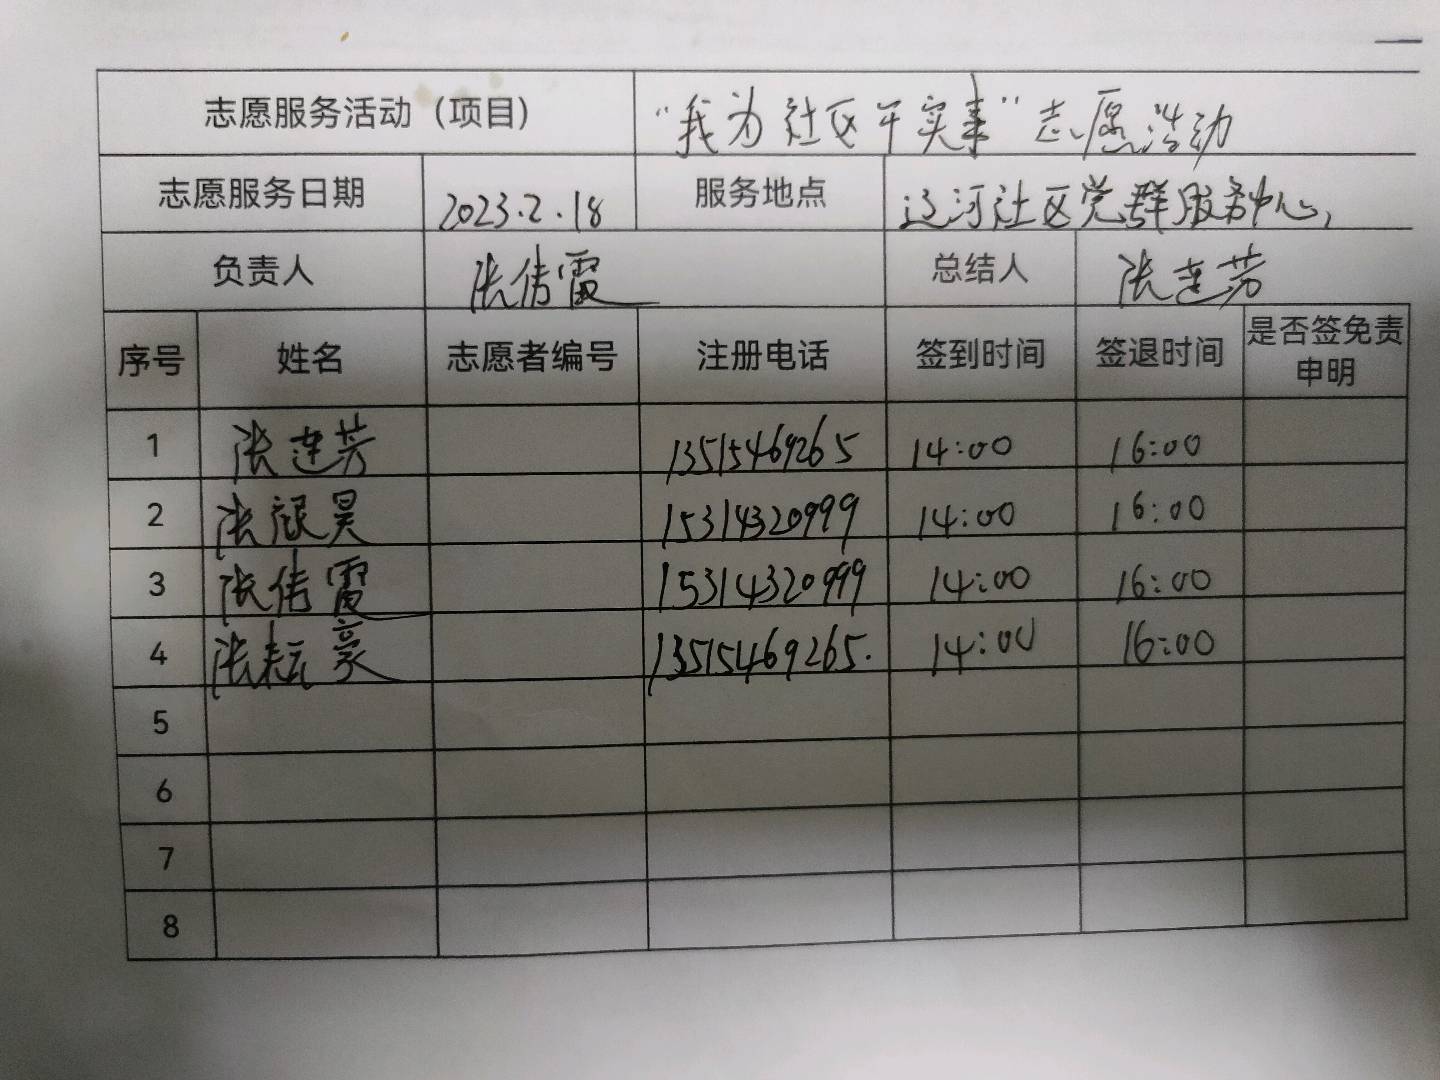 志愿服务活动（项目） “我为社区干实事”志愿活动
志愿服务日期 2023.2.18 服务地点 辽河社区党群服务中心,
负责人 张倩霞 总结人 张莲芳
序号 姓名 志愿者编号 注册电话 签到时间 签退时间 是否签免责
申明
1 张莲芳 13515469265 14:00 16:00
2 张 昊 15314320999 14:00 16:00
3 张倩霞 15314320999 14:00 16:00
4 张耘豪 13515469265. 14:00 16:00
5
6
7
8